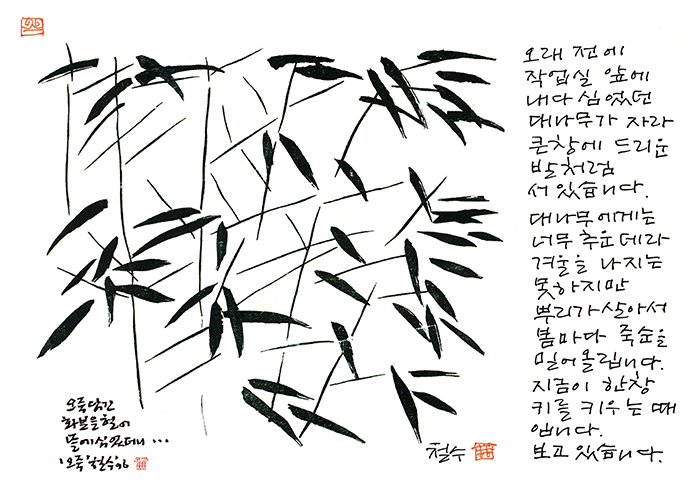 오래 전에
작업실 앞에
내다 심었던
대나무가 자라
큰창에 드리운
발처럼
서 있습니다.
대나무에게는
너무 추운 데라
겨울을 나지는
못하지만
뿌리가 살아서
봄마다 죽순을
밀어올립니다.
지금이 한창
키를 키우는 때
입니다.
보고 있습니다.
오죽담긴
화분을 헐어
뜰에 심었더니...
'오죽' 철수가
철수